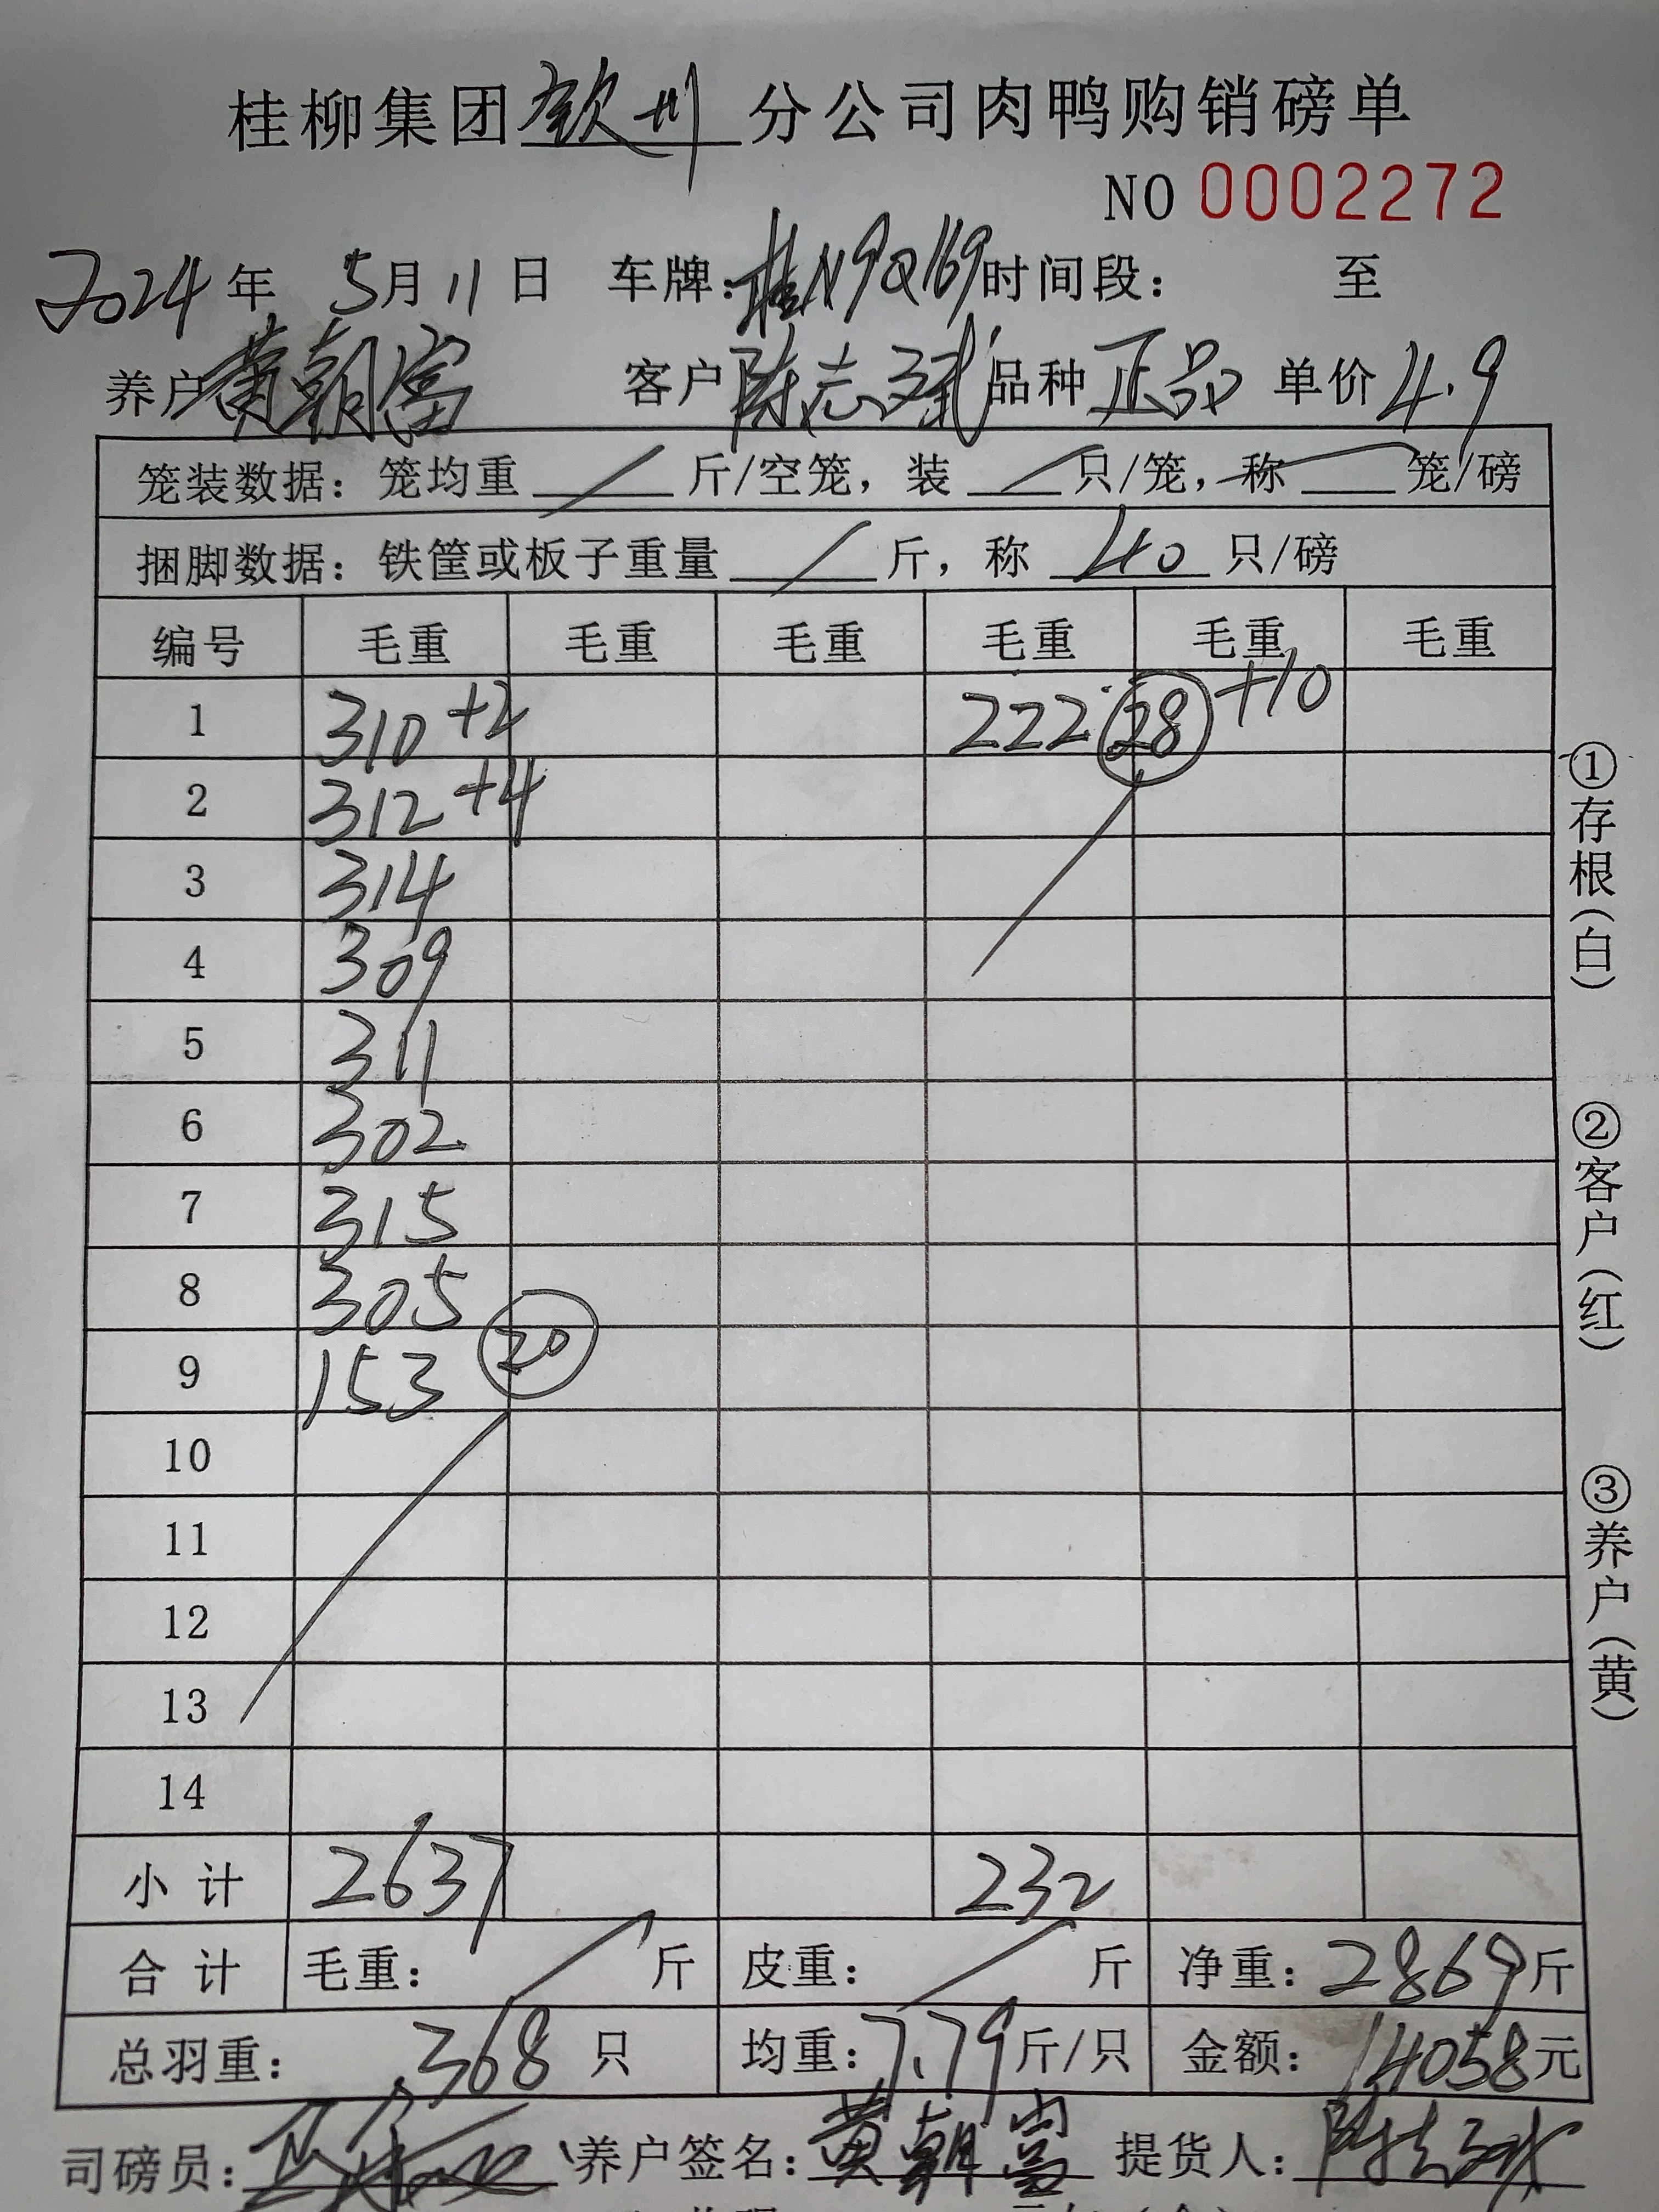 桂柳集团钦州分公司肉鸭购销磅单
NO 0002272
2024年 5月11日 车牌:桂N9Q169时间段: 至
养户黄朝富 客户陈志斌品种正品 单价4.9
笼装数据:笼均重 斤/空笼,装 只/笼,称 笼/磅
捆脚数据:铁筐或板子重量 斤,称 40 只/磅
编号 毛重 毛重 毛重 毛重 毛重 毛重
1 310+2 222 28 +10
2 312+4
3 314
4 309
5 311
6 302
7 315
8 305
9 153 20
10
11
12
13
14
小计 2637 232
合计 毛重: 斤 皮重: 斤 净重:2869斤
总羽重: 368 只 均重:7.79斤/只 金额:14058元
司磅员: 养户签名:黄朝富 提货人:陈志斌
①存根(白)
②客户(红)
③养户(黄)